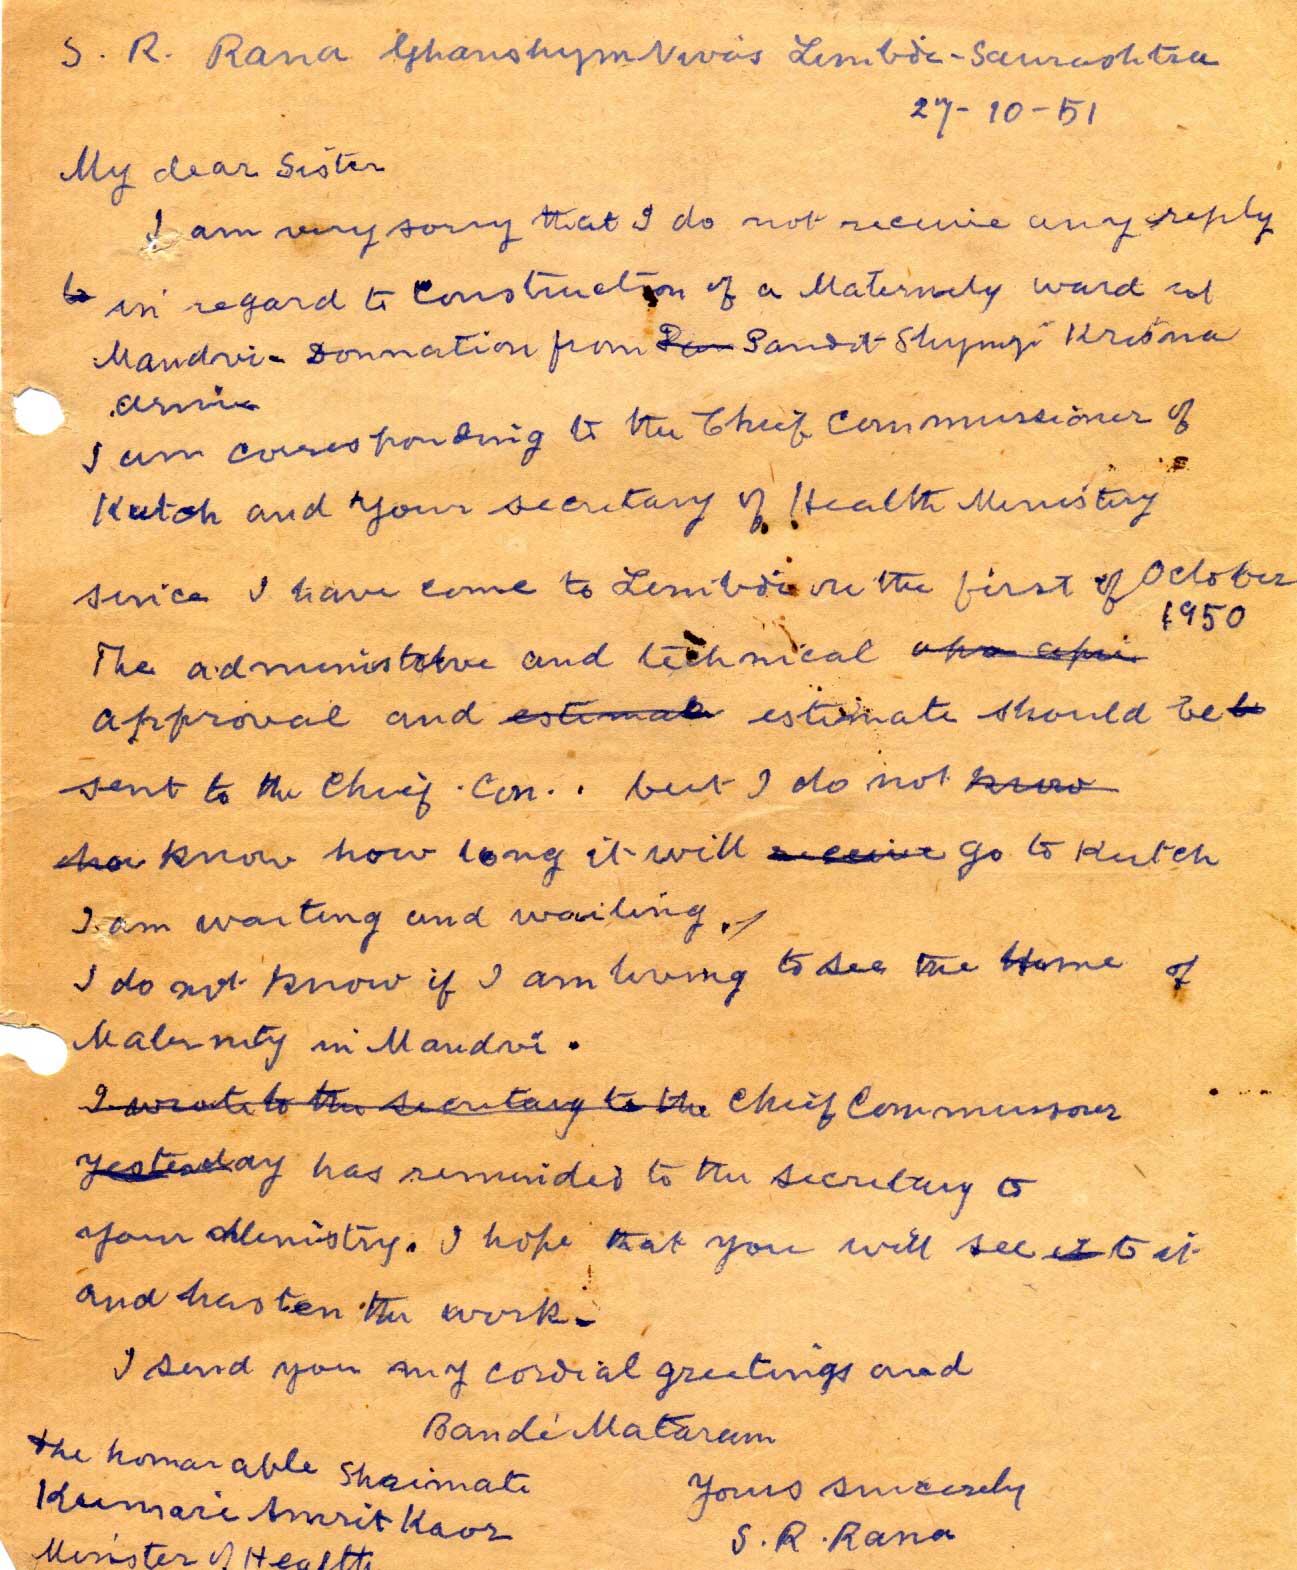 S. R. Rana Ghanshym Nivas Limbdi - Saurashtra
27-10-51
My dear Sister
I am very sorry that I do not receive any reply
to in regard to Construction of a Maternity ward at
Mandvi - Donnation from Pan Pandit Shymji Krisna
I am corresponding to the Chief Commissioner of
Kutch and Your secretary of Health Ministry
since I have come to Limbdi on the first of October
1950
The administative and technical
approval and estimate estimate should be b
sent to the Chief. Con.. but I do not know
how know how long it will receive go to Kutch
I am waiting and waiting.
I do not know if I am living to see the Home of
Maternity in Mandvi.
I wrote to the secretary to the Chief Commissioner
yesterday has reminded to the secretary to
your Ministry. I hope that you will see it to it
and hasten the work -
I send you my cordial greetings and
Bandé Mataram
the honarable Shrimati
Kumari Amrit Kaor
Minister of Health
Yours sincerely
S. R. Rana